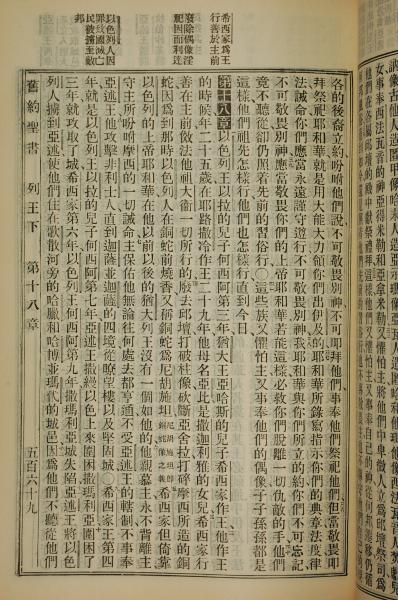 希西家爲王
行善於主前
廢除偶像
以色列人因
罪致國滅亡
民被擄至敵
邦
各的後裔立約吩咐他們說不可敬畏別神不可叩拜他們事奉他們祭祀他們但當敬畏叩
拜祭祀耶和華就是用大能大力領你們出伊及的耶和華所錄寫指示你們的典章法度律
法誡命你們應當永遠謹守遵行不可敬畏別神我耶和華與你們所立的約你們不可忘記
不可敬畏別神應當敬畏你們的上帝耶和華若能這樣必救你們脫離一切仇敵的手他們
竟不聽從卻仍照着先前的習俗行○這些族又懼怕主又事奉他們的偶像子子孫孫都是
這樣他們祖先怎樣行他們也怎樣行直到今日
第十八章以色列王以拉的兒子何西阿第三年猶大王亞哈斯的兒子希西家作王他作王
的時候年二十五歲在耶路撒冷作王二十九年他母名亞比是撒迦利雅的女兒希西家行
善在主前傚法他祖大衞一切所行的廢去邱壇打破柱像砍斷亞舍拉打碎摩西所造的銅
蛇因爲到那時以色列人在銅蛇前燒香又稱銅蛇爲尼胡施坦希西家但倚靠
以色列的上帝耶和華在他以前以後的猶大列王沒有一個如他的他親慕主永不背離主
守主所吩咐摩西的一切誡命主保佑他無論往何處去都亨通不受亞述王的轄制不事奉
亞述王他攻擊非利士人直到迦薩並迦薩的四境從瞭望樓以及堅固城○希西家王第四
年就是以色列王以拉的兒子何西阿第七年亞述王撒縵以色上來圍困撒瑪利亞圍困了
三年就攻取了城希西家第六年以色列王何西阿第九年撒瑪利亞城失陷亞述王將以色
列人擄到亞述使他們住在歌散河旁的哈臘和哈博並瑪代的城邑因爲他們不聽從他們
舊約聖書 列王下 第十八章 五百六十九